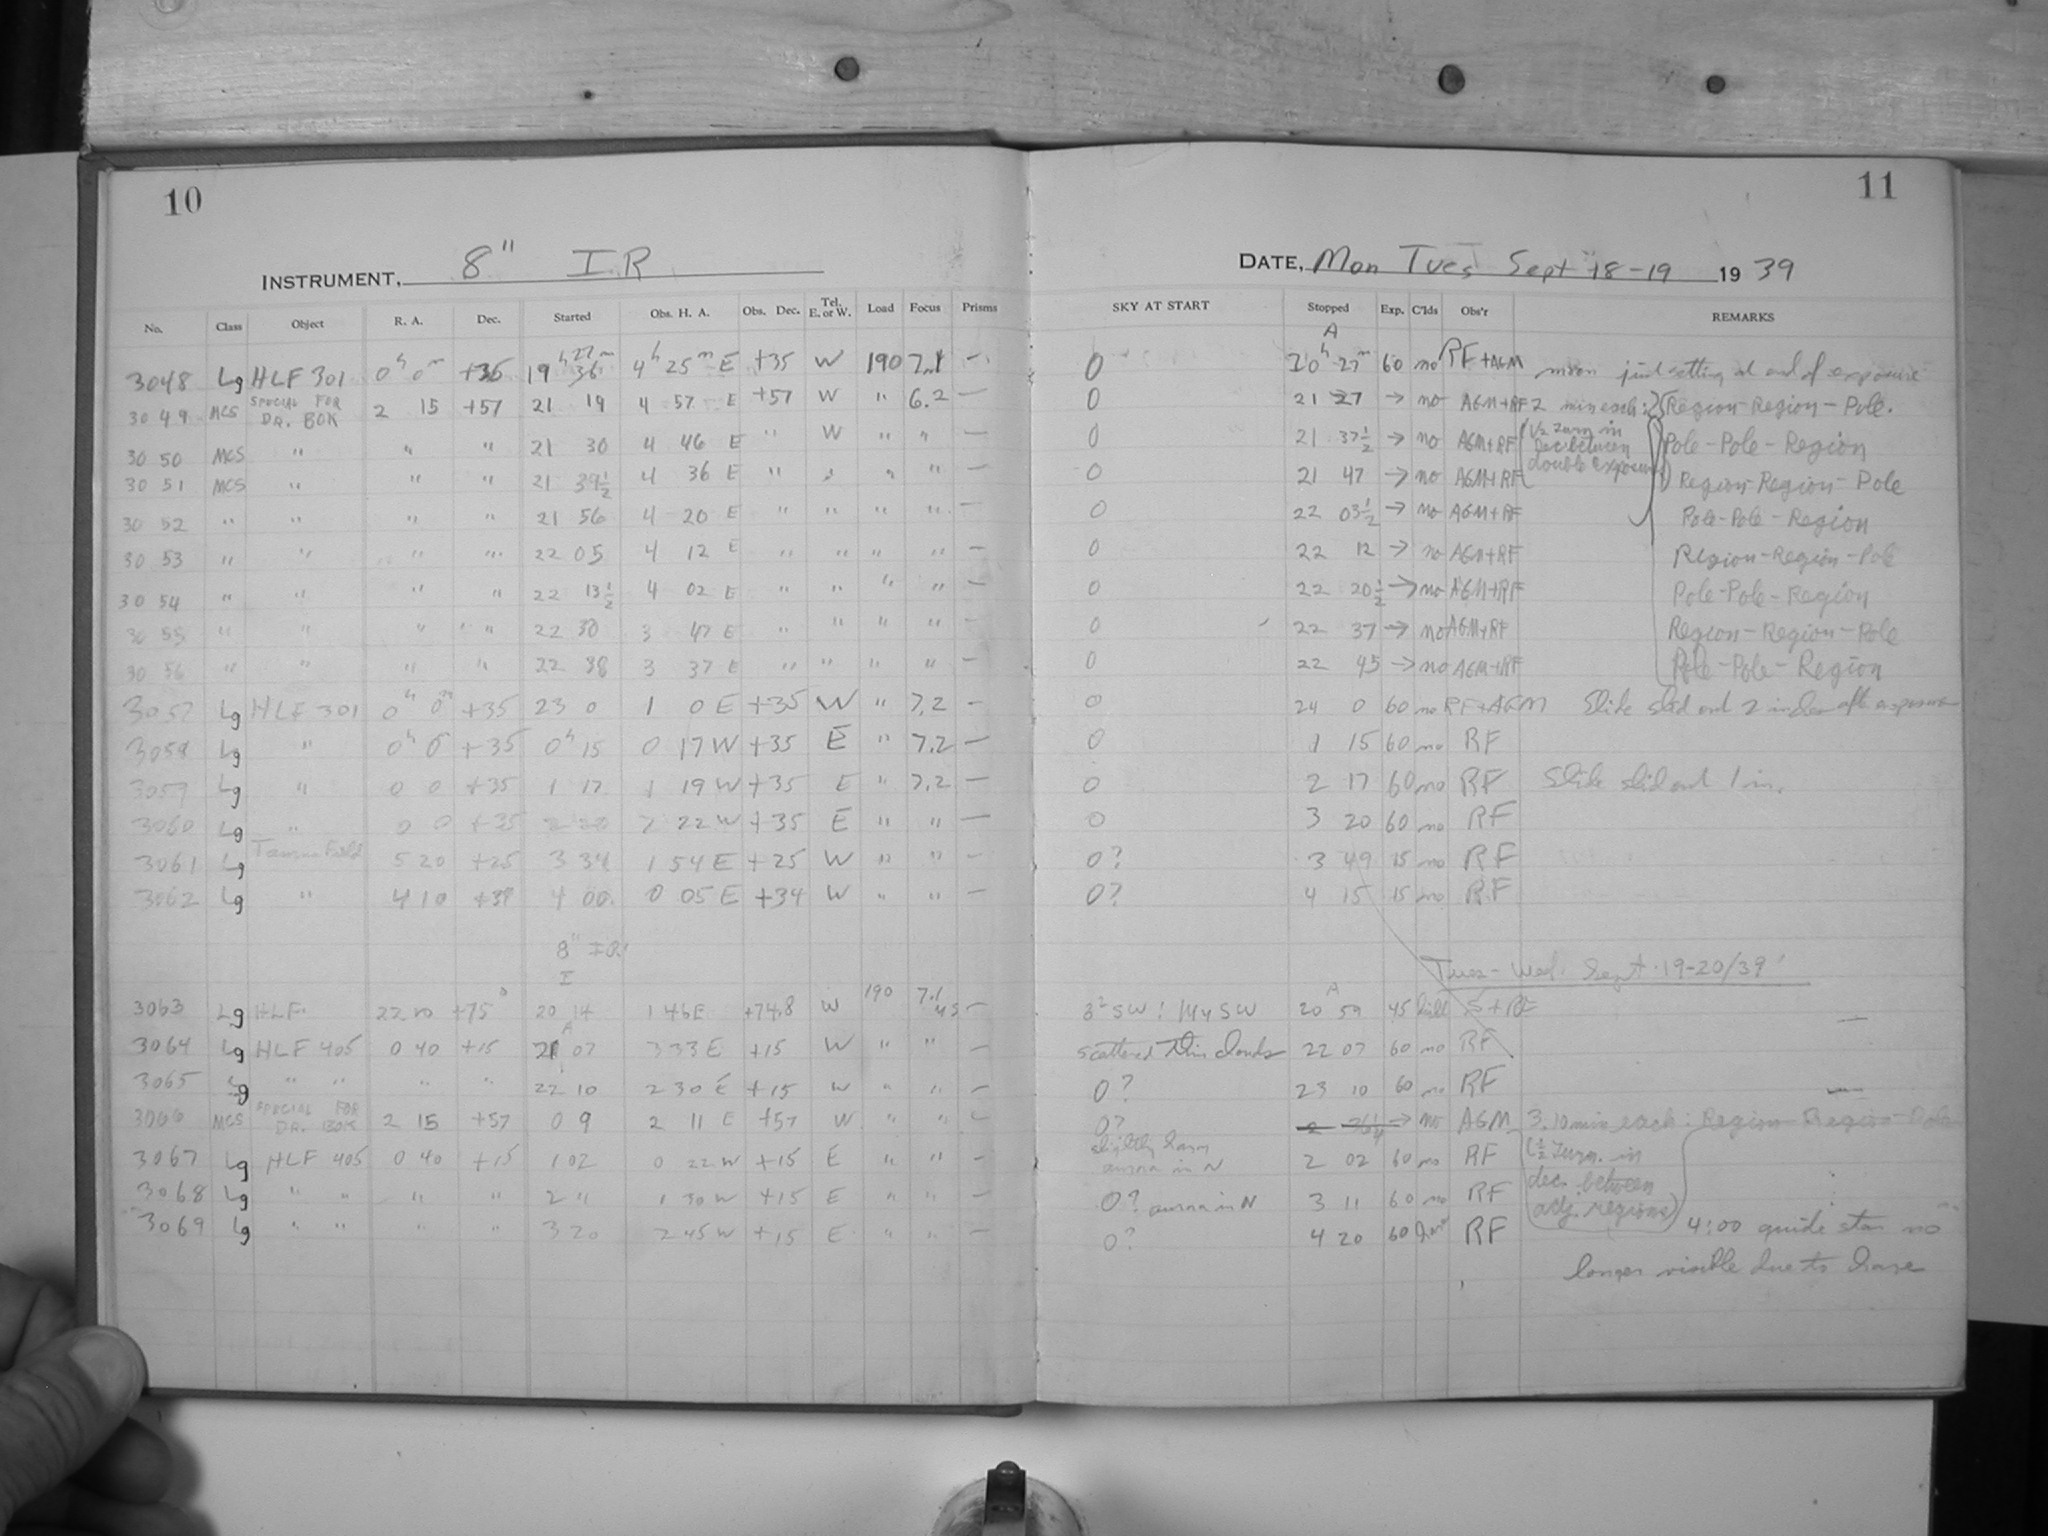 10
INSTRUMENT, 8" IR
No. Class Object R. A. Dec. Started Obs. H. A. Obs. Dec. Tel. E. or W. Load Focus Prisms
3048 Lg HLF 301 0h 0m +35 19h 27m 36 4h 25m E +35 W 190 7.1 –
3049 MCS SPECIAL FOR DR. BOK 2 15 +57 21 19 4 57 E +57 W " 6.2 –
3050 MCS " " " 21 30 4 46 E " W " " –
3051 MCS " " " 21 39½ 4 36 E " " " " –
3052 " " " " 21 56 4 20 E " " " " –
3053 " " " " 22 05 4 12 E " " " " –
3054 " " " " 22 13½ 4 02 E " " " " –
3055 " " " " 22 30 3 47 E " " " " –
3056 " " " " 22 38 3 37 E " " " " –
3057 Lg HLF 301 0h 0m +35 23 0 1 0 E +35 W " 7.2 –
3058 Lg " 0h 0m +35 0h 15 0 17 W +35 E " 7.2 –
3059 Lg " 0 0 +35 1 17 1 19 W +35 E " 7.2 –
3060 Lg " 0 0 +35 2 20 2 22 W +35 E " " –
3061 Lg Taurus Field 5 20 +25 3 34 1 54 E +25 W " " –
3062 Lg " 4 10 +34 4 00 0 05 E +34 W " " –
8" IR
I
3063 Lg HLF 22 10 +75° 20 14 1 46 E +74.8 W 190 7.1 –
3064 Lg HLF 405 0 40 +15 21 07 3 33 E +15 W " " –
3065 Lg " " " " 22 10 2 30 E +15 W " " –
3066 MCS SPECIAL FOR DR. BOK 2 15 +57 0 9 2 11 E +57 W " " –
3067 Lg HLF 405 0 40 +15 1 02 0 22 W +15 E " " –
3068 Lg " " " " 2 11 1 30 W +15 E " " –
3069 Lg " " " " 3 20 2 45 W +15 E " " –
11
DATE, Mon Tues Sept 18-19 1939
SKY AT START Stopped Exp. C'lds Obs'r REMARKS
A
0 20h 27m 60 no RF+AGM moon just setting at end of exposure
0 21 27 → no AGM+RF 2 min each: Region-Region-Pole.
0 21 37½ → no AGM+RF (½ turn in Dec. between double exposures) Pole-Pole-Region
0 21 47 → no AGM+RF Region-Region-Pole
0 22 03½ → no AGM+RF Pole-Pole-Region
0 22 12 → no AGM+RF Region-Region-Pole
0 22 20½ → no AGM+RF Pole-Pole-Region
0 22 37 → no AGM+RF Region-Region-Pole
0 22 45 → no AGM+RF Pole-Pole-Region
0 24 0 60 no RF+AGM Slide slid out 2 inches after exposure
0 1 15 60 no RF
0 2 17 60 no RF Slide slid out 1 in.
0 3 20 60 no RF
0? 3 49 15 no RF
0? 4 15 15 no RF
Tues-Wed. Sept. 19-20/39
A
20 59 45 S+RF
scattered thin clouds 22 07 60 no RF
0? 23 10 60 no RF
0? 2 → no AGM 3.10 min each: Region-Region-Pole
slightly hazy aurora in N 2 02 60 no RF (½ turn. in dec. between adj. regions)
0? aurora in N 3 11 60 no RF
0? 4 20 60 RF 4:00 guide star no
longer visible due to haze